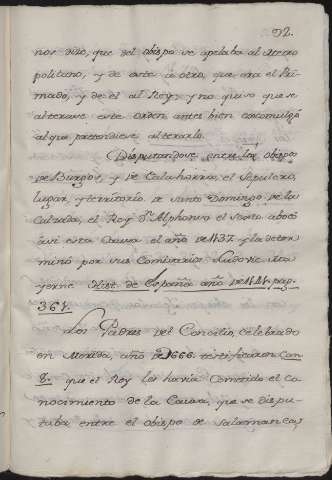 92.
nos dijo, que del obispo se apelaba al Metro
politano, y de este à otro, que era el Pri
mado, y de èl al Rey: y no quiso que se
alterase este orden antes bien excomulgó
al que pretendiese alterarlo.
Disputandose entre los obispos
de Burgos, y de Calahorra, el Sepulcro,
lugar, y territorio de Santo Domingo de la
Calzada, el Rey Dn. Alphonso el sexto abocó
à sì esta Causa el año de 1137 y la deter
minó por sus Comisarios. Ludovic. Ma
yerne Hist. de España año de pag.
367.
Los Padres del Concilio, celebrado
en Merida, año de 666. testificaron Can
8. que el Rey les havia Cometido el Co
nocimiento de la Causa, que se dispu
taba entre el obispo de Salamanca,